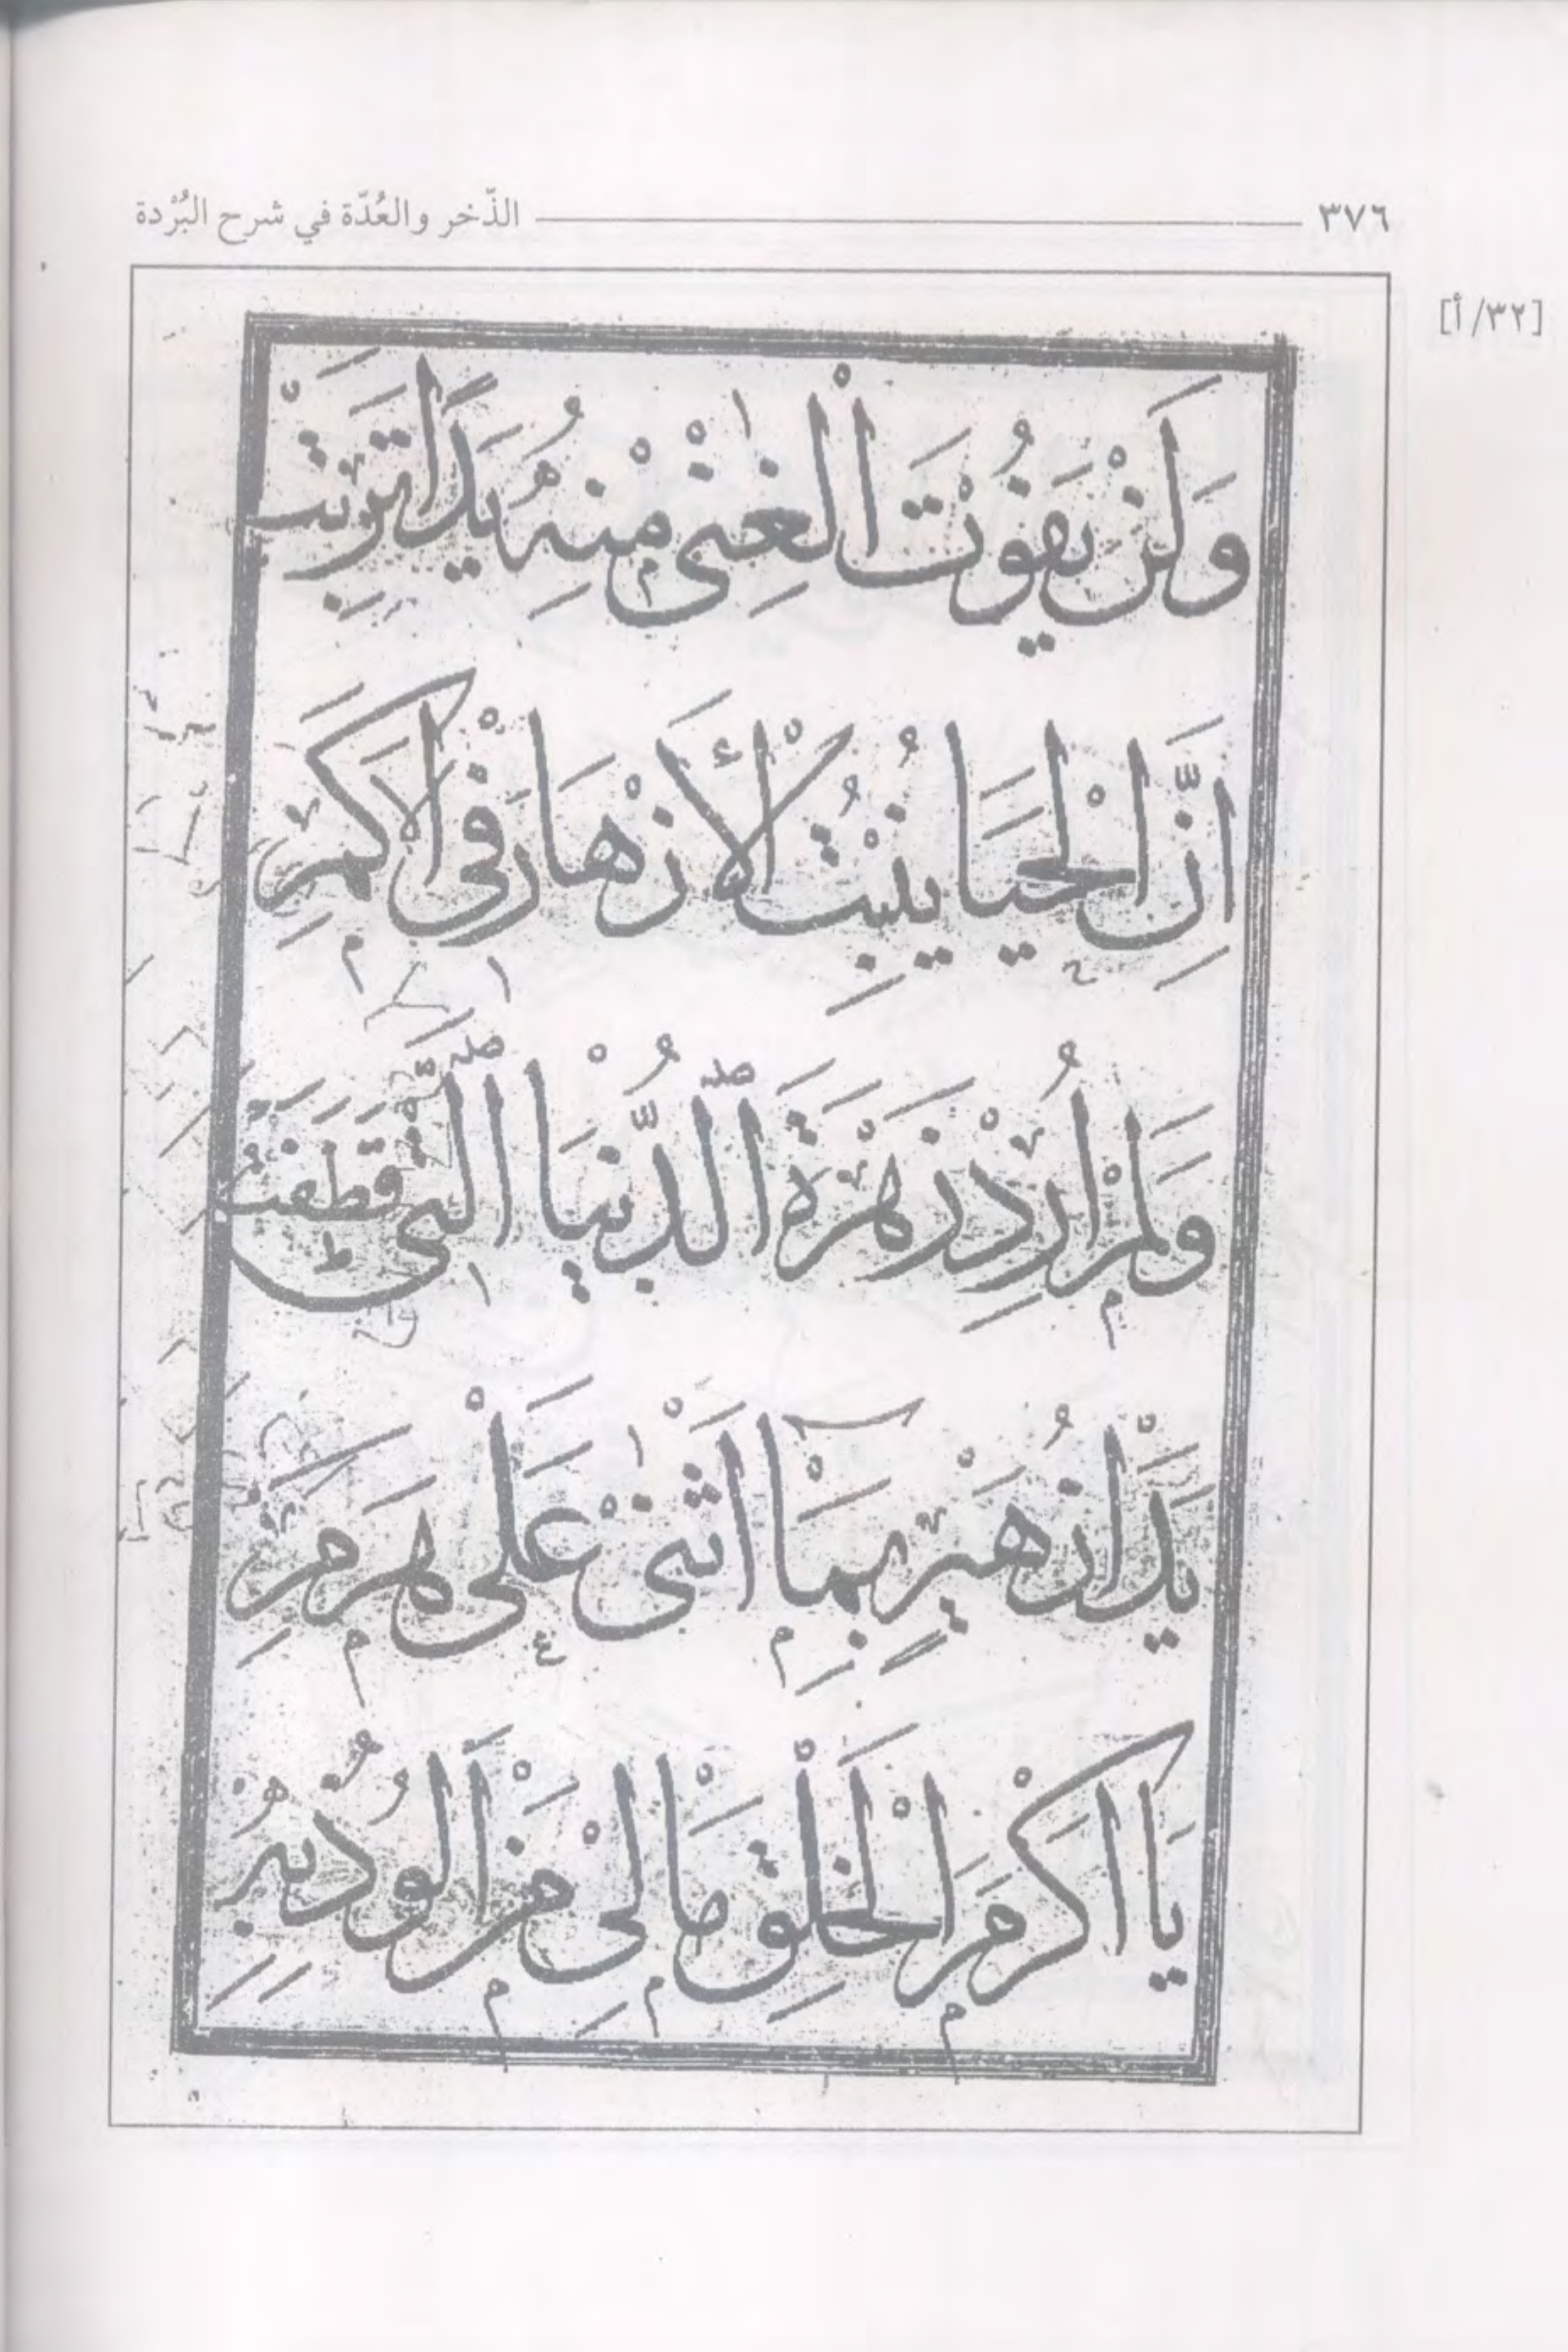 ٣٧٦ الذّخر والعُدّة في شرح البُرْدة
[٣٢/ أ]
وَلَنْ يَفُوْتَ الْغِنٰىْ مِنْهُ يَدًا تَرِبَتْ
اِنَّ الْحَيَا يُنْبِتُ الْأَزْهَارَ فِىْ الْاَكَمِ
وَلَمْ اُرِدْ زَهْرَةَ الدُّنْيَا الَّتِىْ قَطَفَتْ
يَدَا زُهَيْرٍ بِمَآ اَثْنٰىْ عَلٰى هَرَمِ
يَا اَكْرَمَ الْخَلْقِ مَا لِىْ مَنْ اَلُوْذُ بِهِ